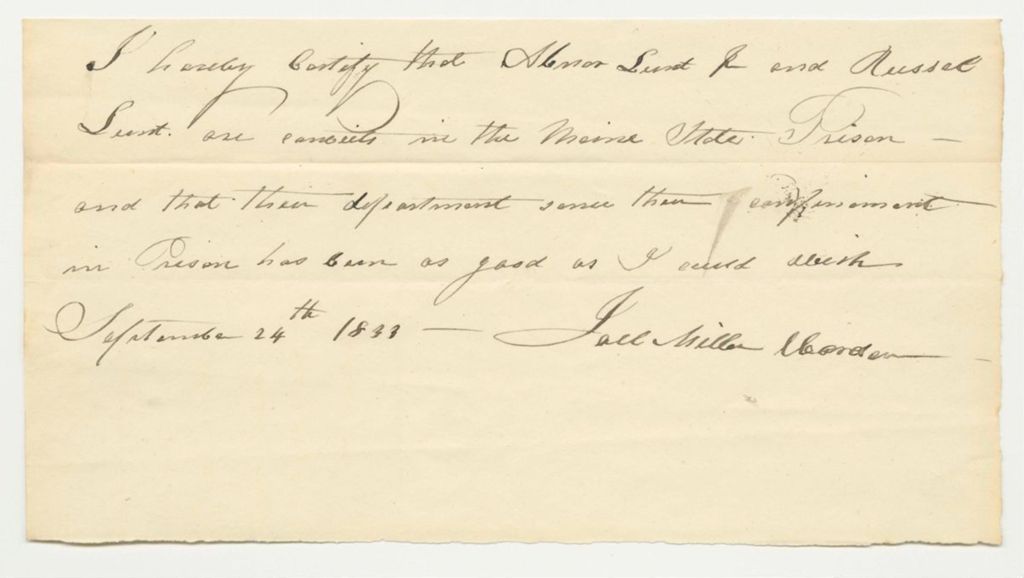 I hereby Certify that Abner Lunt Jr and Russel
Lunt. are convicts in the Maine State Prison —
and that their department since their confinement
in Prison has been as good as I could wish
September 24th 1833 — Joel Miller Warden —